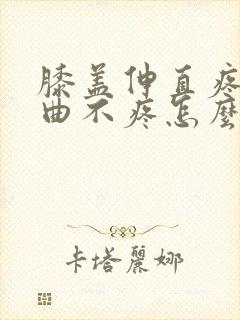 膝盖伸直疼
曲不疼怎麼
卡塔麗娜